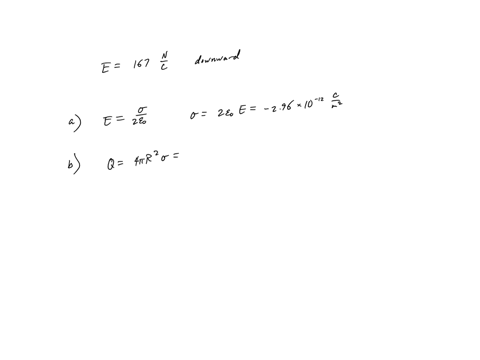 E = 167 N/C downward
a) E = σ/2ε₀ σ = 2ε₀ E = -2.96 × 10⁻¹² C/m²
b) Q = 4πR²σ =